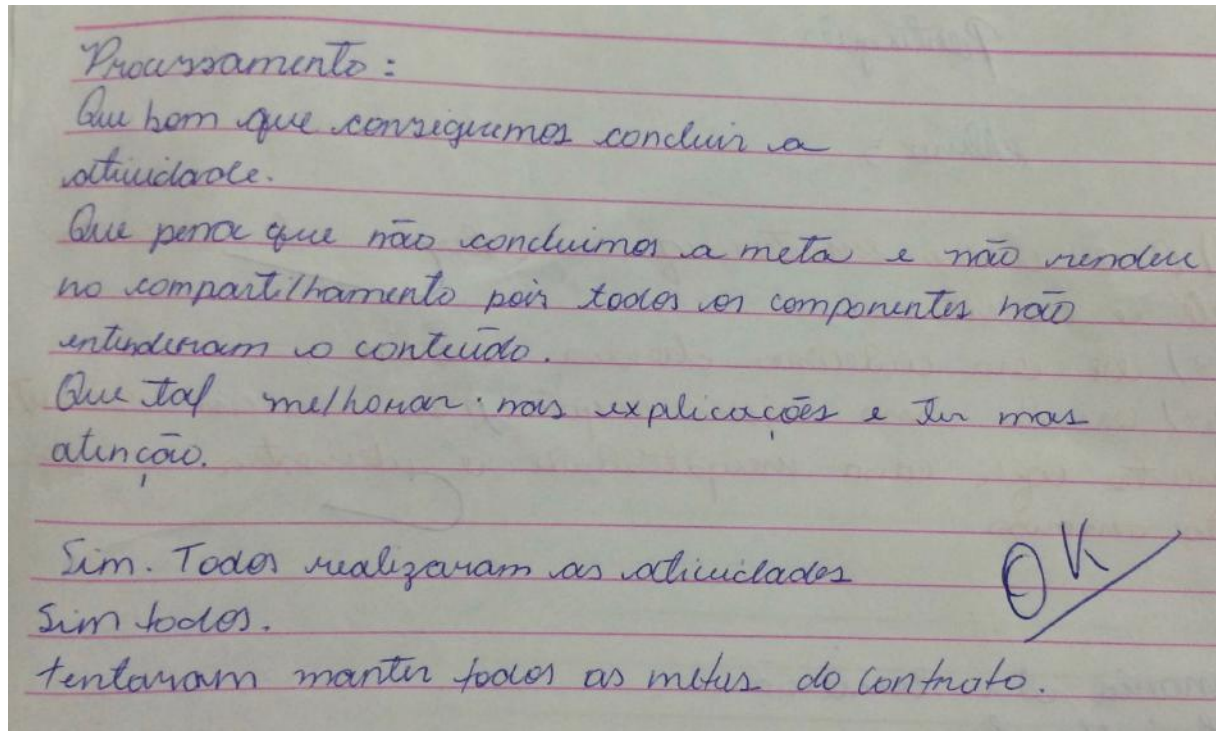 Processamento:
Que bom que conseguimos concluir a
atividade.
Que pena que não concluimos a meta e não rendeu
no compartilhamento pois todos os componentes não
entenderam o conteúdo.
Que tal melhorar nas explicações e ter mas
atenção.
Sim. Todos realizaram as atividades
OK
Sim todos.
tentaram manter todos as metas do contrato.